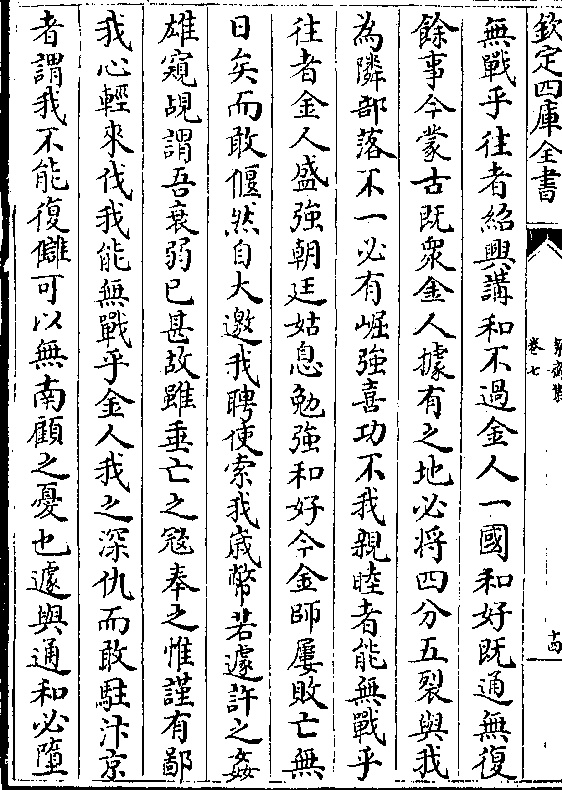 欽定四庫全書
卷七
十四
無戰乎往者紹興講和不過金人一國和好既通無復
餘事今蒙古既衆金人據有之地必將四分五裂與我
為隣部落不一必有崛強喜功不我親睦者能無戰乎
往者金人盛強朝廷姑息勉強和好今金師屢敗亡無
日矣而敢偃然自大邀我聘使索我歲幣若遽許之姦
雄窺覘謂吾衰弱已甚故雖垂亡之宼奉之惟謹有鄙
我心輕來伐我能無戰乎金人我之深仇而敢駐汴京
者謂我不能復讎可以無南顧之憂也遽與通和必墮